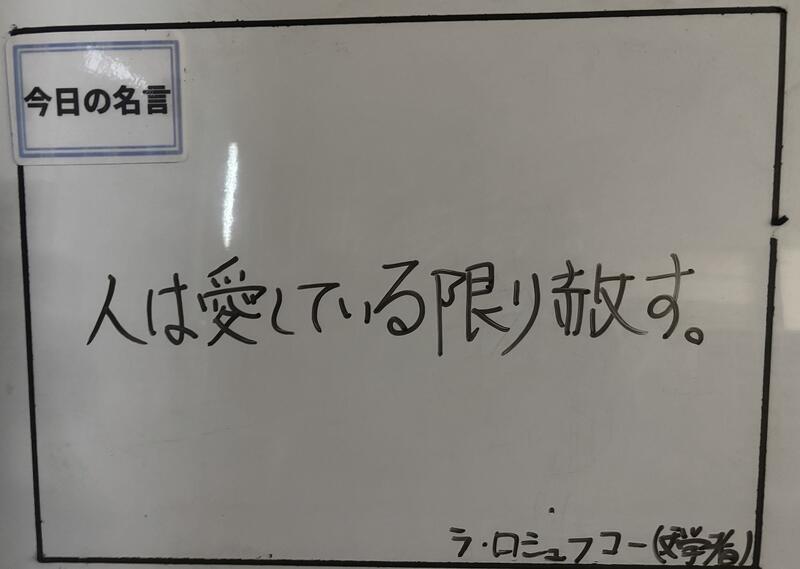 今日の名言
人は愛している限り赦す。
ラ・ロシュフコー(文学者)